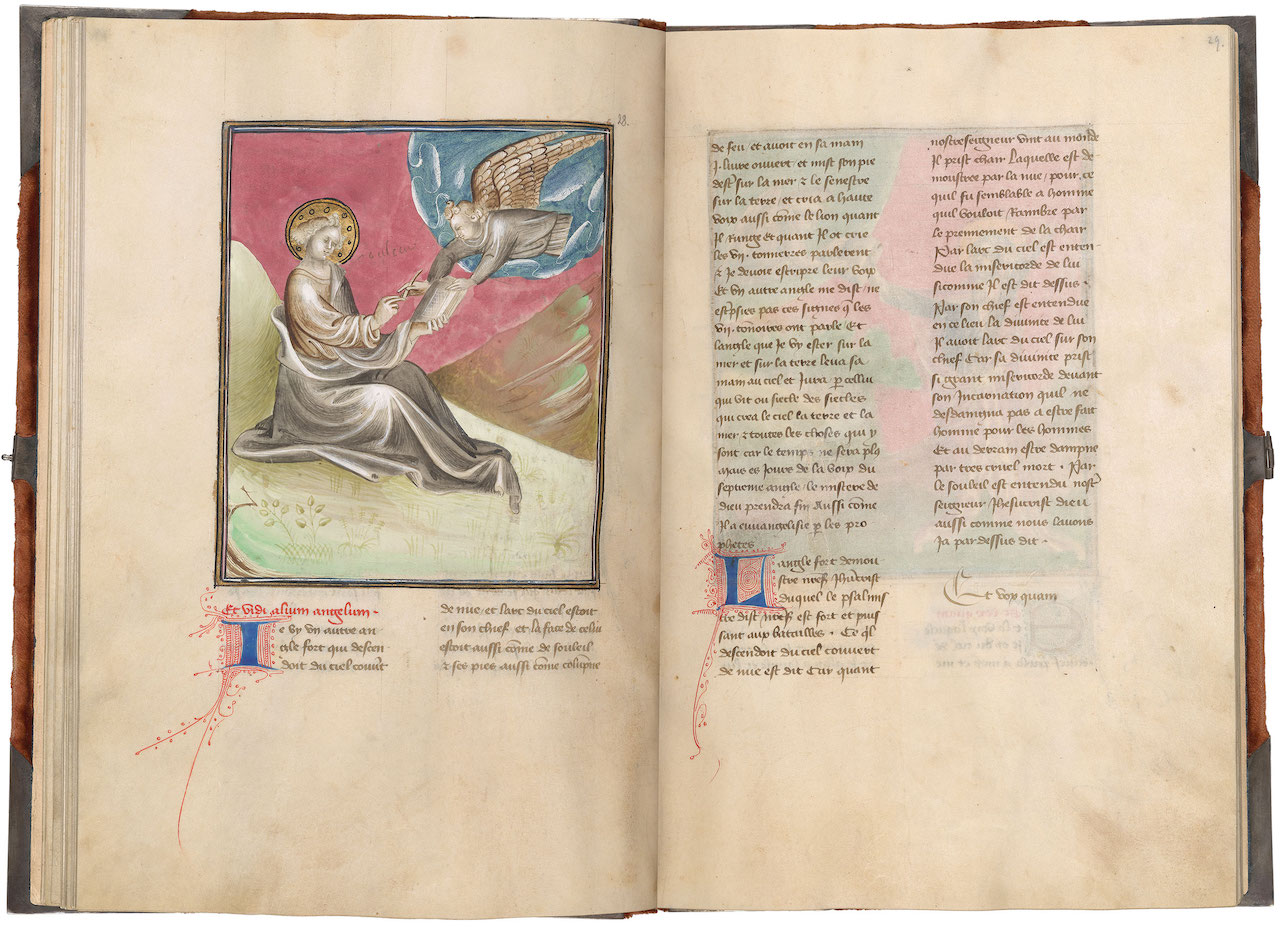 28.
Et vidi alium angelum.
Ie vy vn autre an
gle fort qui descen
doit du ciel couuert
de nue et larc du ciel estoit
en son chief et la face de celui
estoit aussi cōme de souleil
⁊ ses pies aussi cōme columpne
29.
de feu et auoit en sa main
.I. liure ouuert et mist son pie
destr̄ sur la mer ⁊ le senestre
sur la terre, et cria a haute
voix aussi cōme le lion quant
Il runge Et quant Il ot crie
les vij. tonnerres parlerent
⁊ Je deuoie escripre leur voix
Et vn autre angle me dist ne
pas ces signes q̄ les
vij. tonnoires ont parle Et
langle que Je vy ester sur la
mer et sur la terre leua sa
main au ciel et Jura p̱ cellui
qui vit ou siecle des siecles
qui crea le ciel la terre et la
mer ⁊ toutes les choses qui y
sont car le temps ne sera plꝰ
Mais es Jours de la voix du
septieme angle le mistere de
dieu prendra fin Aussi cōme
Il a euuangelisie p̱ les pro
phetes
Langle fort demou
stre
duquel le psalmis
te dist fort et puis
sant aux batailles. Ce q̄l
descendoit du ciel couuert
de nue est dit Car quant
nostreseigneur vint au monde
Il prist chair Laquelle est de
moustree par la nue pour ce
quil fu semblable a homme
quil vouloit Raimbre par
le prennement de la chair
Par larc du ciel est enten
due la misericorde de lui
sicomme Il est dit dessus.
Par son chief est entendue
en ce lieu la diuinite de lui
Il auoit larc du ciel sur son
chief Car sa diuinite prist
si grant misericorde deuant
son Incarnation quil ne
desdaingna pas a estre fait
homme pour les hommes
Et au derrain estre dampne
par tres cruel mort. Par
le souleil est entendu nostr̄
seigneur Jhesucrist dieu
aussi comme nous lauons
Ja par dessus dit.
Et vox quam